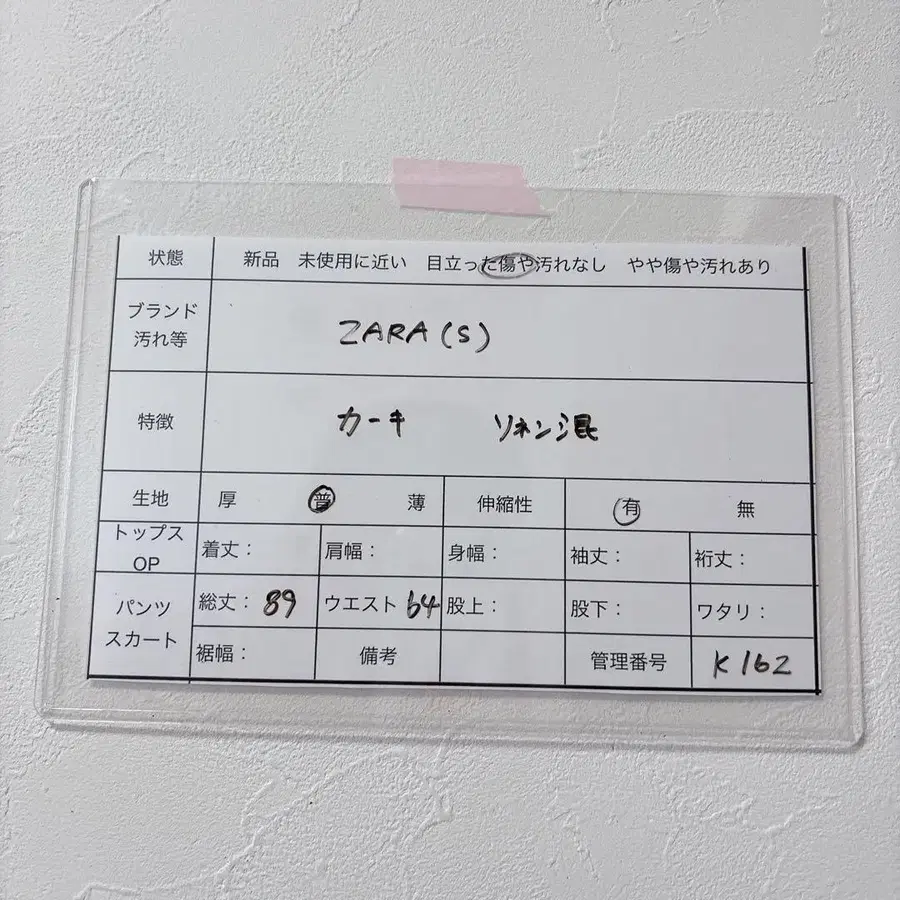 状態 新品 未使用に近い 目立った傷や汚れなし やや傷や汚れあり
ブランド
汚れ等
ZARA (S)
特徴 カーキ リネン混
生地 厚 普 薄 伸縮性 有 無
トップス
OP
着丈: 肩幅: 身幅: 袖丈: 裄丈:
パンツ
スカート
総丈: 89 ウエスト 64 股上: 股下: ワタリ:
裾幅: 備考 管理番号 K162